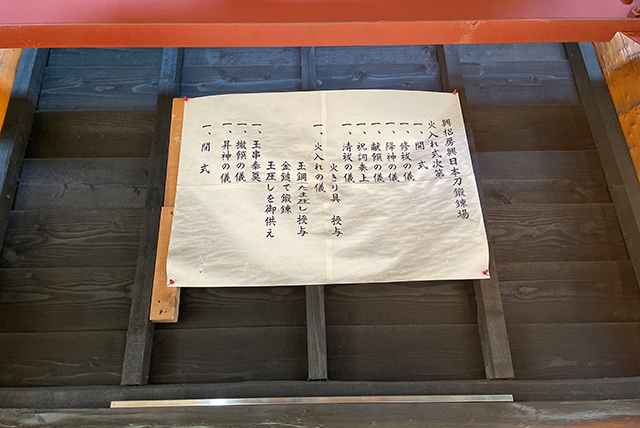 興梠房興日本刀鍛錬場
火入れ式次第
一、開式
一、修祓の儀
一、降神の儀
一、献饌の儀
一、祝詞奏上
一、清祓の儀
火きり具 授与
一、火入れの儀
玉鋼たま圧し授与
金鎚で鍛錬
玉圧しを御供え
一、玉串奉奠
一、撤饌の儀
一、昇神の儀
一、閉式